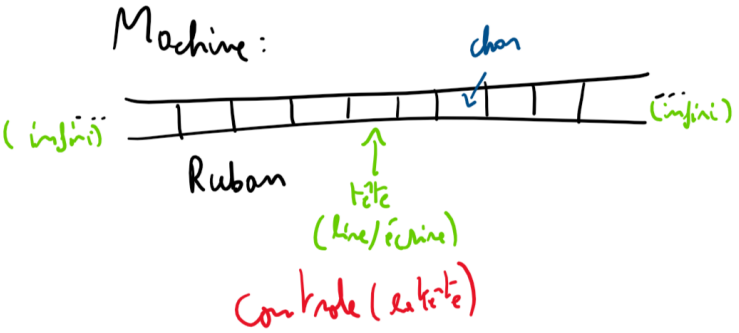 Machine :
char
(infini) ...
... (infini)
Ruban
tête
(lire/écrire)
controle (la tête)